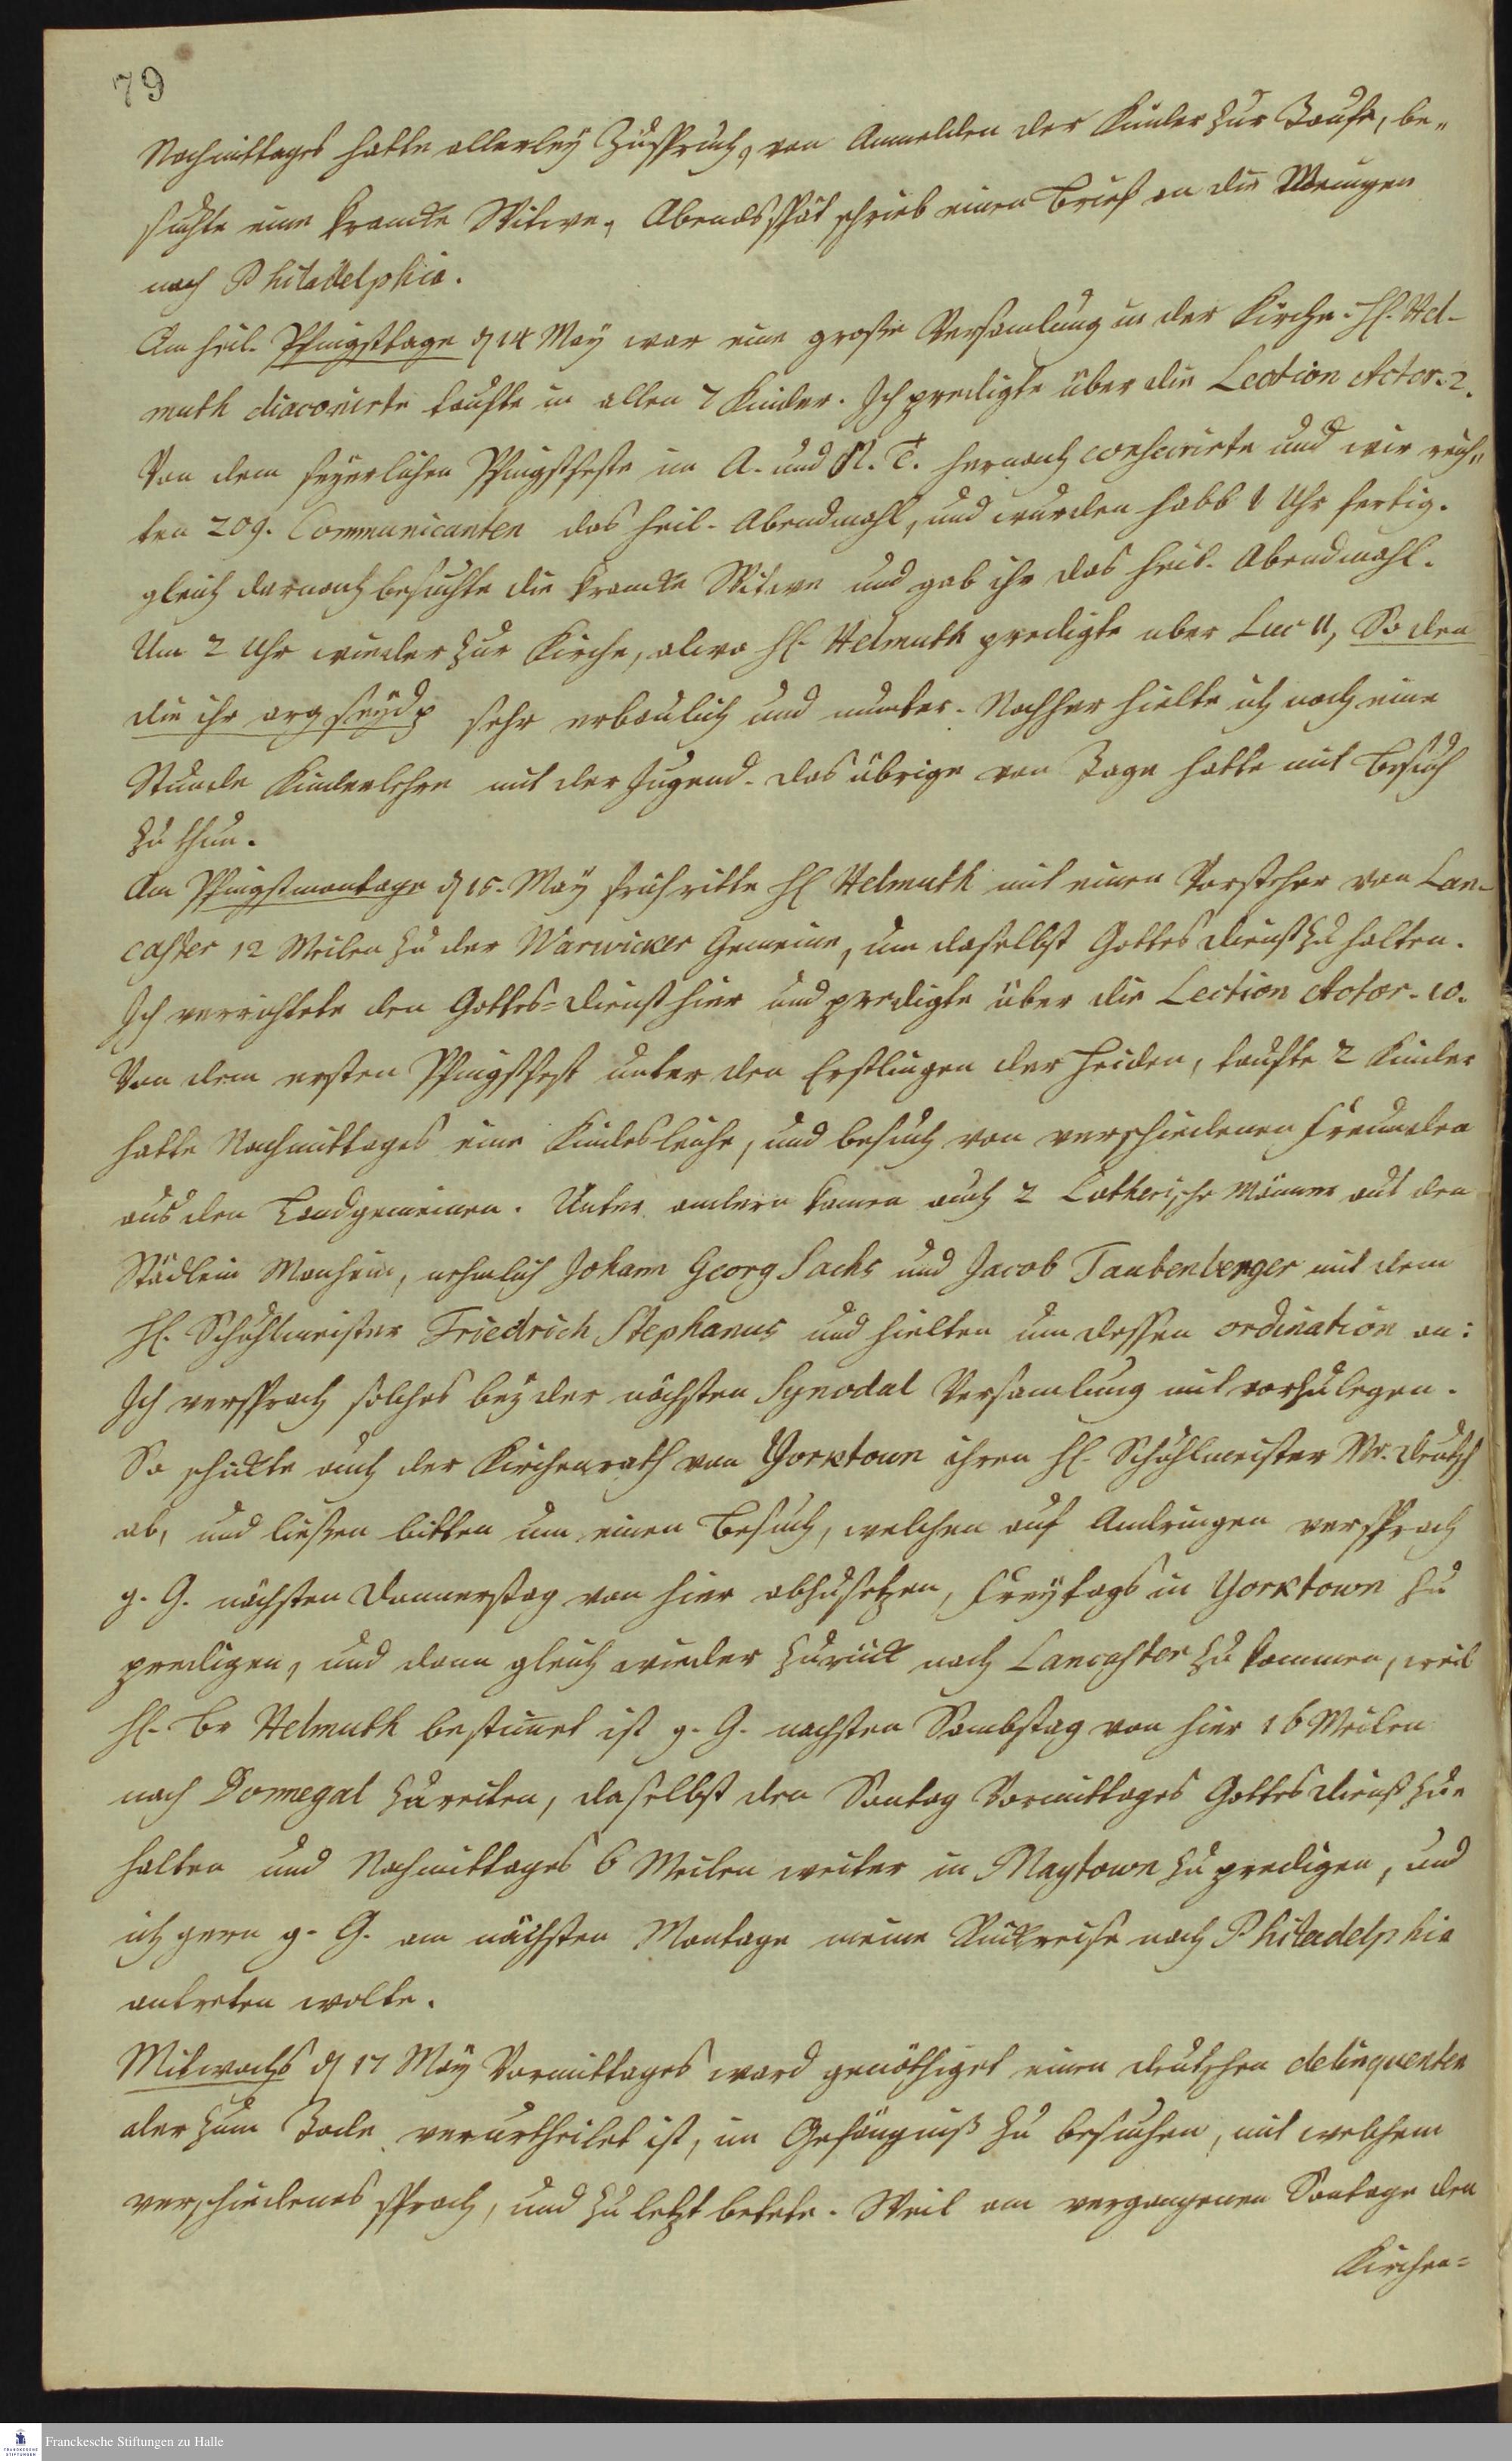 79
Nachmittages hatte allerleÿ Zuspruch, von Anmelden der Kinder zur Taufe, be-
suchte eine krancke Witwe, Abends spät schrieb einen Brief an die Meinigen
nach Philadelphia.
Am heil. Pfingsttage d 14 Maÿ war eine große Versamlung in der Kirche. H. Hel-
muth diaconirte taufte in allen 7 Kinder. Ich predigte über die Lection Actor. 2.
Von dem feÿerlichen Pfingstfeste im A. und N. T. hernach consecrirte und wir reich-
ten 209. Communicanten das heil. Abendmahl, und wurden halb 1 Uhr fertig.
gleich darnach besuchte die krancke Witwe und gab ihr das heil. Abendmahl.
Um 2 Uhr wieder zur Kirche, alwo H. Helmuth predigte uber Luc 11, So den
die ihr arg seÿd p sehr erbaulich und munter. Nachher hielte ich noch eine
Stunde Kinderlehre mit der Jugend. das übrige von Tage hatte mit Besuch
zu thun.
Am Pfingstmontage d 15. Maÿ früh ritte H. Helmuth mit einen Vorsteher von Lan-
caster 12 Meilen zu der Warwicker Gemeine, um daselbst Gottes dienst zu halten.
Ich verrichtete den Gottes-dienst hier und predigte über die Lection Actor. 10.
Von dem ersten Pfingstfest unter den Erstlingen der Heiden, taufte 2 Kinder
hatte Nachmittages eine Kindesleiche, und besuch von verschiedenen Freunden
aus den Landgemeinen. Unter andern kamen auch 2 Lutherische Männer aus den
Städlein Manheim, nehmlich Johann Georg Sachs und Jacob Taubenberger mit dem
H. Schuhlmeister Friedrich Stephanus und hielten um dessen ordination an:
Ich versprach solches beÿ der nächsten Synodal Versamlung mit vorzulegen.
So schickte auch der Kirchenrath von Yorktown ihren H. Schuhlmeister Mr. deutsch
ab, und ließen bitten um einen Besuch, welchen auf Andringen versprach
g. G. nächsten Donnerstag von hier abzusetzen, Freÿtags in Yorktown zu
predigen, und dann gleich wieder zurück nach Lancaster zu kommen, weil
H. Br Helmuth bestimet ist g. G. nachsten Sambstag von hier 16 Meilen
nach Donnegal zu reiten, daselbst den Sontag Vormittages Gottesdienst zu
halten und Nachmittages 6 Meilen weiter in Maytown zu predigen, und
ich gern g. G. am nächsten Montage meine Rückreise nach Philadelphia
antreten wolte.
Mitwochs d 17 Maÿ Vormittages ward genöthiget einen deutschen delinquenten
der zum Tode verurtheilet ist, im Gefängniß zu besuchen, mit welchem
verschiedenes sprach, und zu letzt betete. Weil am vergangenen Sontage den
Kirchen-
Franckesche Stiftungen zu Halle
FRANCKESCHE STIFTUNGEN